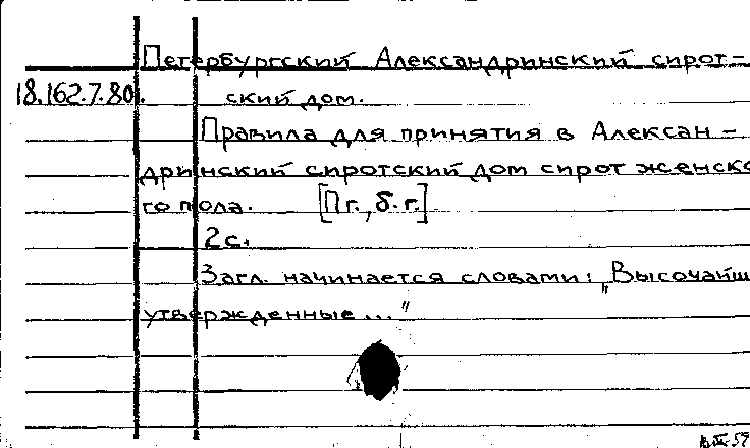 Петербургский Александринский сирот-
18.162.7.80. ский дом.
Правила для принятия в Алексан-
дринский сиротский дом сирот женско
го пола. [Пг., б.г.]
2с.
Загл. начинается словами: „Высочайш
утвержденные..."